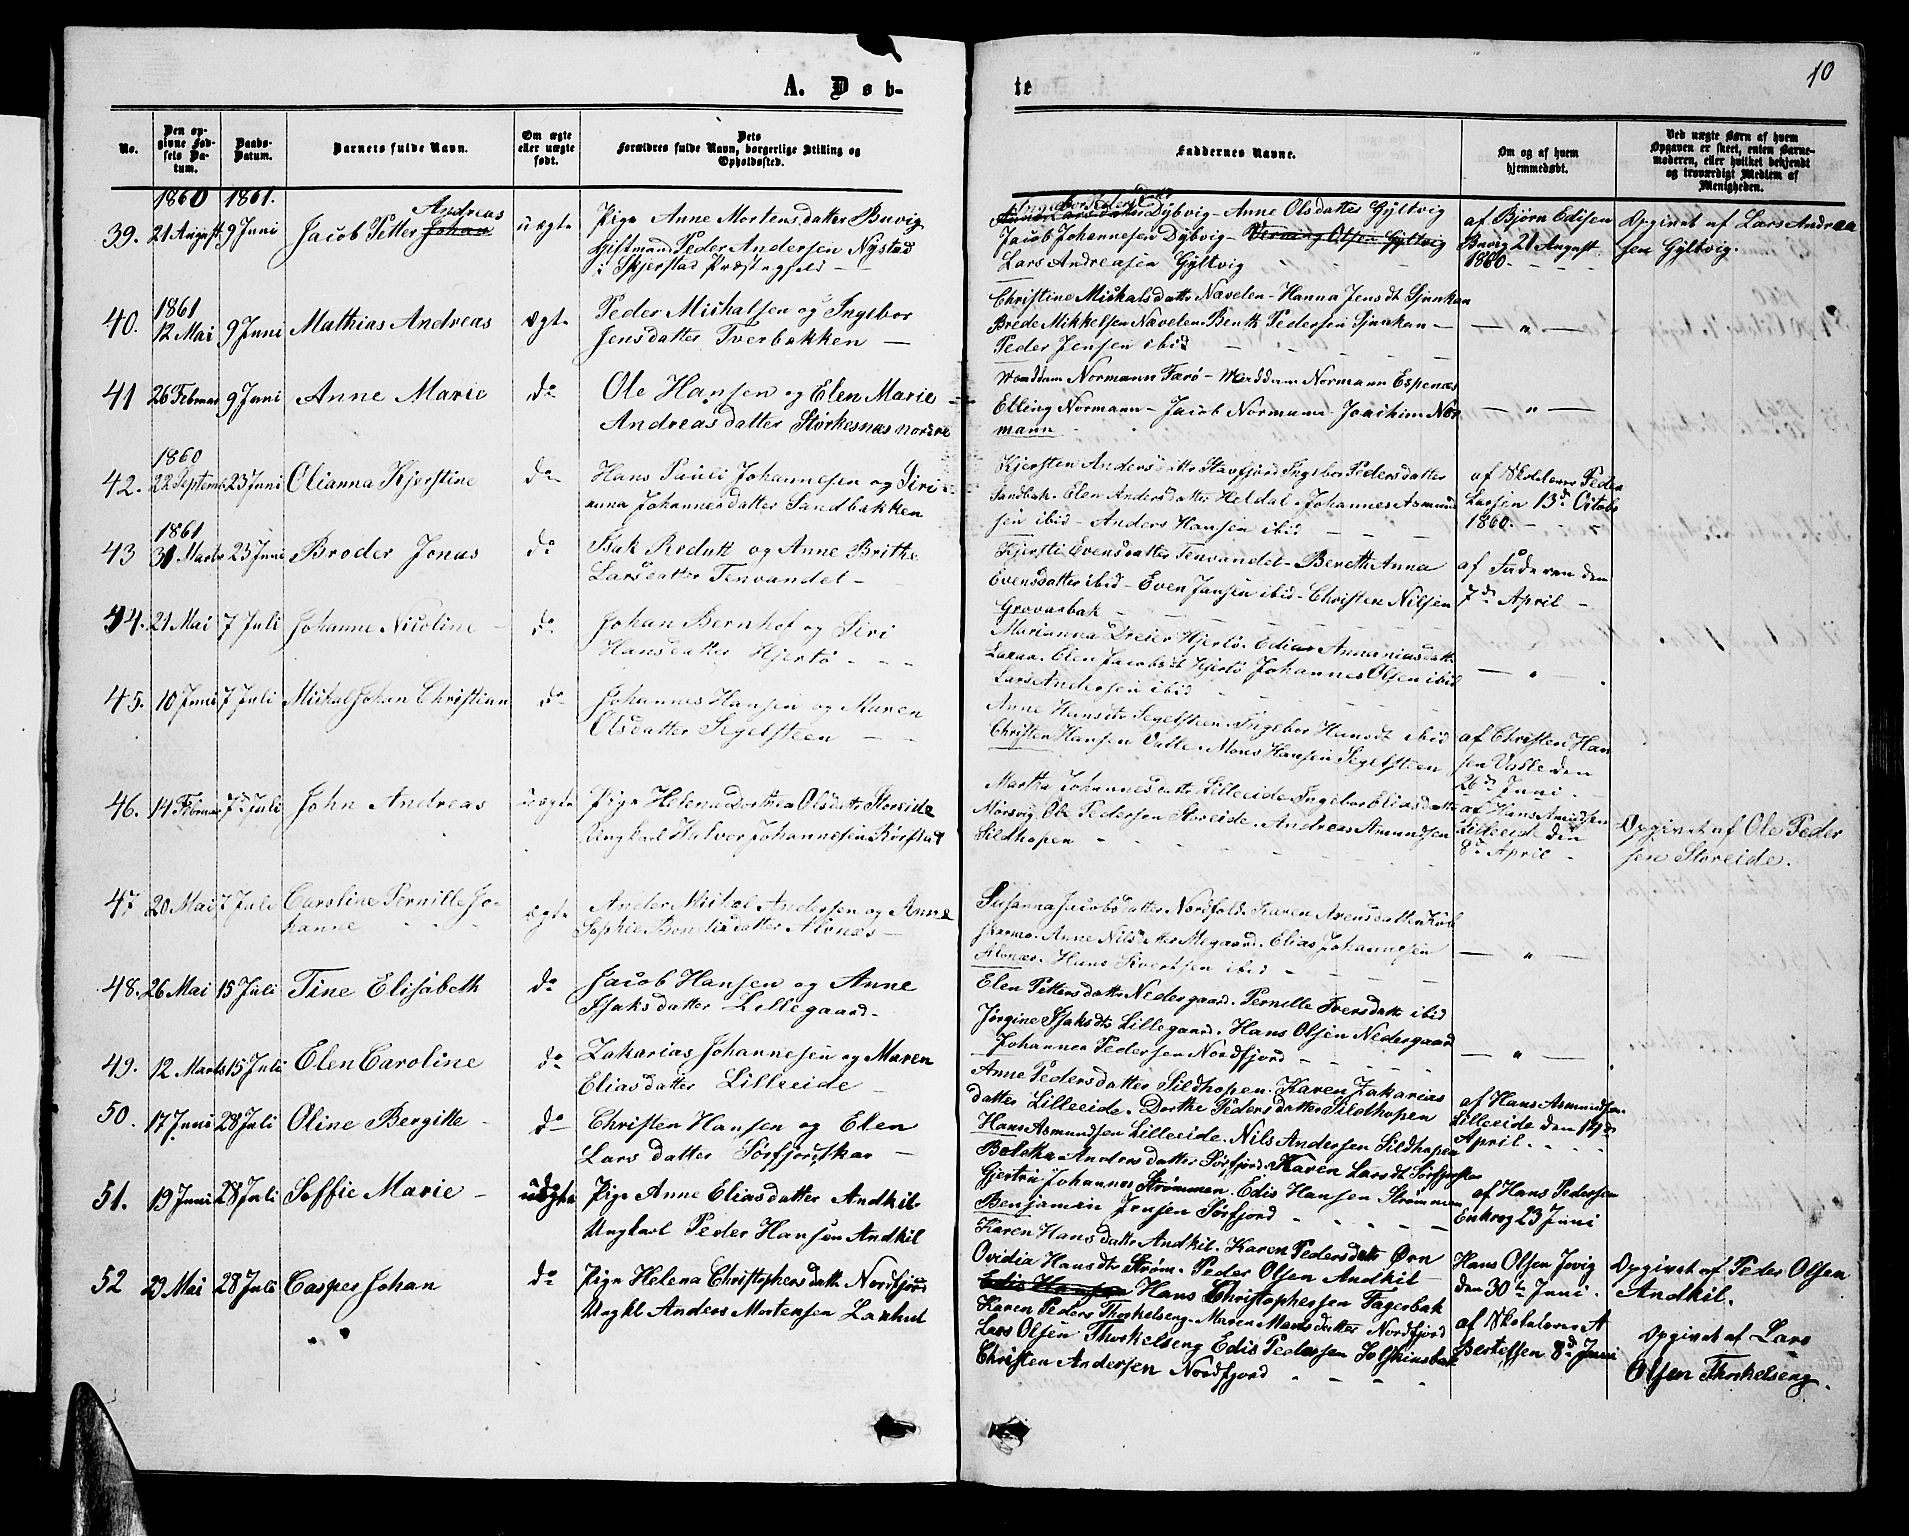 10
A. Døb-
te
No.
Den op-
givne Fød-
sels Da-
tum.
Daabs-
Datum.
Barnets fulde Navn.
Om ægte
eller uægte
født.
Dets
Forældres fulde Navn, borgerlige Stilling og
Opholdssted.
Faddernes Navne.
Om og af hvem
hjemmedøbt.
Ved uægte Børn af hvem
Opgaven er skeet, enten Barne-
moderen, eller hvilket bekjendt
og troværdigt Medlem af
Menigheden.
1860 1861.
39. 21 August 9 Juni Jacob Petter Johan Andreas uægte
Pige Anne Mortensdatter Buvig
Giftmand Peder Andersen Nystad
i Skjerstad Præstegjeld
Dybvig - Anne Olsdatter Gyltvig
Jacob Johannesen Dybvig - Olsen Gyltvig
Lars Andreasen Gyltvig
af Bjørn Edisen
Buvig 21 August
1860
Opgivet af Lars Andrea
sen Gyltvig.
1861
40. 12 Mai 9 Juni Mathias Andreas ægte
Peder Michalsen og Ingebor
Jensdatter Tverbakken
Christine Michalsdatter Nævelen - Hanna Jensdt Sjunkan
Brede Mikkelsen Nævelen Benth Pedersen Sjunkan
Peder Jensen ibid
— " —
41 26 Februar 9 Juni Anne Marie do
Ole Hansen og Elen Marie
Andreasdatter Storkesnæs nordre
Maddam Normann Farø - Maddam Normann Espenæs
Elling Normann - Jacob Normann - Joachim Nor
mann
— " —
1860
42. 22 Septemb 23 Juni Olianna Kjerstine do
Hans Pauli Johannesen og Siri
anna Johannesdatter Sandbakken
Kjersten Andersdatter Stavfjord Ingebor Pedersdatter
Sandbak - Elen Andersdatter Heldal - Johannes Asmund
sen ibid - Anders Hansen ibid
af Skolelærer Peder
Larsen 13d Octobr
1860.
1861
43 31 Marts 23 Juni Broder Jonas do
Isak Reduk og Anne Brithe
Larsdatter Tenvandet
Kjersti Evensdatter Tenvandet - Bereth Anna
Evensdatter ibid - Even Jansen ibid - Christen Nilsen
Grovasbak
af Faderen den
7de April
44. 21 Mai 7 Juli Johanne Nicoline do
Johan Bernhof og Siri
Hansdatter Hjertø
Marianna Dreier Hjertø - Edias Annaniasdatter
Laxaa - Elen Jacobsdt Hjertø Johannes Olsen ibid
Lars Andersen ibid
— " —
45. 10 Juni 7 Juli Michal Johan Christian do
Johannes Hansen og Maren
Olsdatter Segelsteen
Anne Hansdtr Segelsteen - Ingebor Hansdt ibid
Christen Hansen Valle - Mons Hansen Segelsteen
af Christen Han
sen Valle den
26de Juni
46. 14 Februar 7de Juli John Andreas uægte
Pige Helena Dorthea Olsdatter Storeide
Ungkarl Halvor Johannesen Børstad
Martha Johannesdatter Lilleeide Ingebor Eliasdatter
Mørsvig, Ole Pedersen Storeide - Andreas Asmundsen
Sildhopen
af Hans Amundsen
Lilleeide den
8de April
Opgivet af Ole Peder
sen Storeide.
47 20 Mai 7 Juli Caroline Pernille Jo-
hanne
ægte
Ander Mickal Andersen og Anne
Sophie Bendixdatter Alvnæs
Susanna Jacobsdatter Nordfold - Karen Arensdatter Kob
Anne Nilsdatter Megaard - Elias Johannesen
Alvnæs - Hans Sivertsen ibid
— " —
48. 26 Mai 15 Juli Tine Elisabeth do
Jacob Hansen og Anne
Isaksdatter Lillegaard
Elen Pettersdatter Nedergaard - Pernille Iversdatt ibid
Jørgine Isaksdtr Lillegaard - Hans Olsen Nedergaard
Johannes Pedersen Nordfjord
— " —
49. 12 Marts 15 Juli Elen Caroline do
Zakarias Johannesen og Maren
Eliasdatter Lilleeide
Anne Pedersdatter Sildhopen - Karen Zakarias
datter Lilleeide - Dorthe Pedersdatter Sildhopen
Hans Asmundsen Lilleeide - Nils Andersen Sildhopen
af Hans Asmundsen
Lilleeide den 19de
April.
50. 17 Juni 28 Juli Oline Bergitte do
Christen Hansen og Elen
Larsdatter Sørfjordskar
Boletha Andersdatter Sørfjord - Karen Larsdt Sørfjordskar
Gjertru Johannes Strømmen - Edis Hansen Strømmen
Benjamin Jensen Sørfjord
af Hans Pedersen
Enkrog 23 Juni
51. 19 Juni 28 Juli Soffie Marie uægte
Pige Anne Eliasdatter Andkil
Ungkarl Peder Hansen Andkil
Karen Hansdatter Andkil - Karen Pedersdatt Ørn
Ovidia Hansdtr Strøm - Peder Olsen Andkil
Edis Hansen Hans Christophersen Fagerbak
Hans Olsen Jevig
den 30te Juni.
Opgivet af Peder Olsen
Andkil.
52 29 Mai 28 Juli Casper Johan do
Pige Helena Christophersdatt Nordfjord
Ungkl Anders Mortensen Laxhul
Karen Peders Thorkelseng - Maren Monsdatter Nordfjord
Lars Olsen Thorkelseng Edis Pedersen Solskinsbak
Christen Andersen Nordfjord
af Skolelærer A
Bertelsen 8de Juni
Opgivet af Lars
Olsen Thorkelseng.